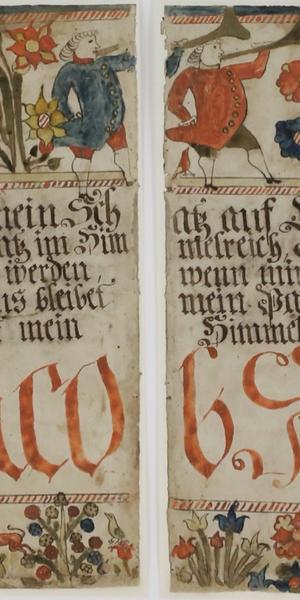 mein Sch atz auf
atz im Him melreich
werden wenn mir
us bleibet mein
mein Himmel
aco b